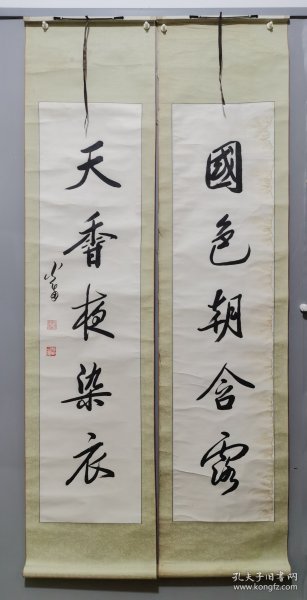 國色朝含露
天香夜染衣
孔夫子旧书网